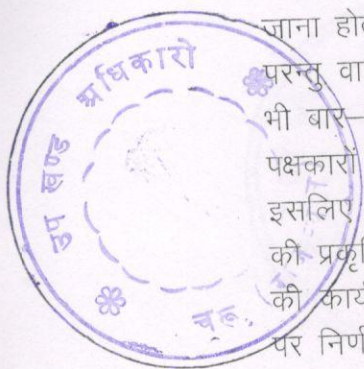 जाना हो
परन्तु वा
भी बार–
पक्षकारों
इसलिए
की प्रकृ
की कार्य
पर निर्ण
उप खण्ड अधिकारी
चूरू